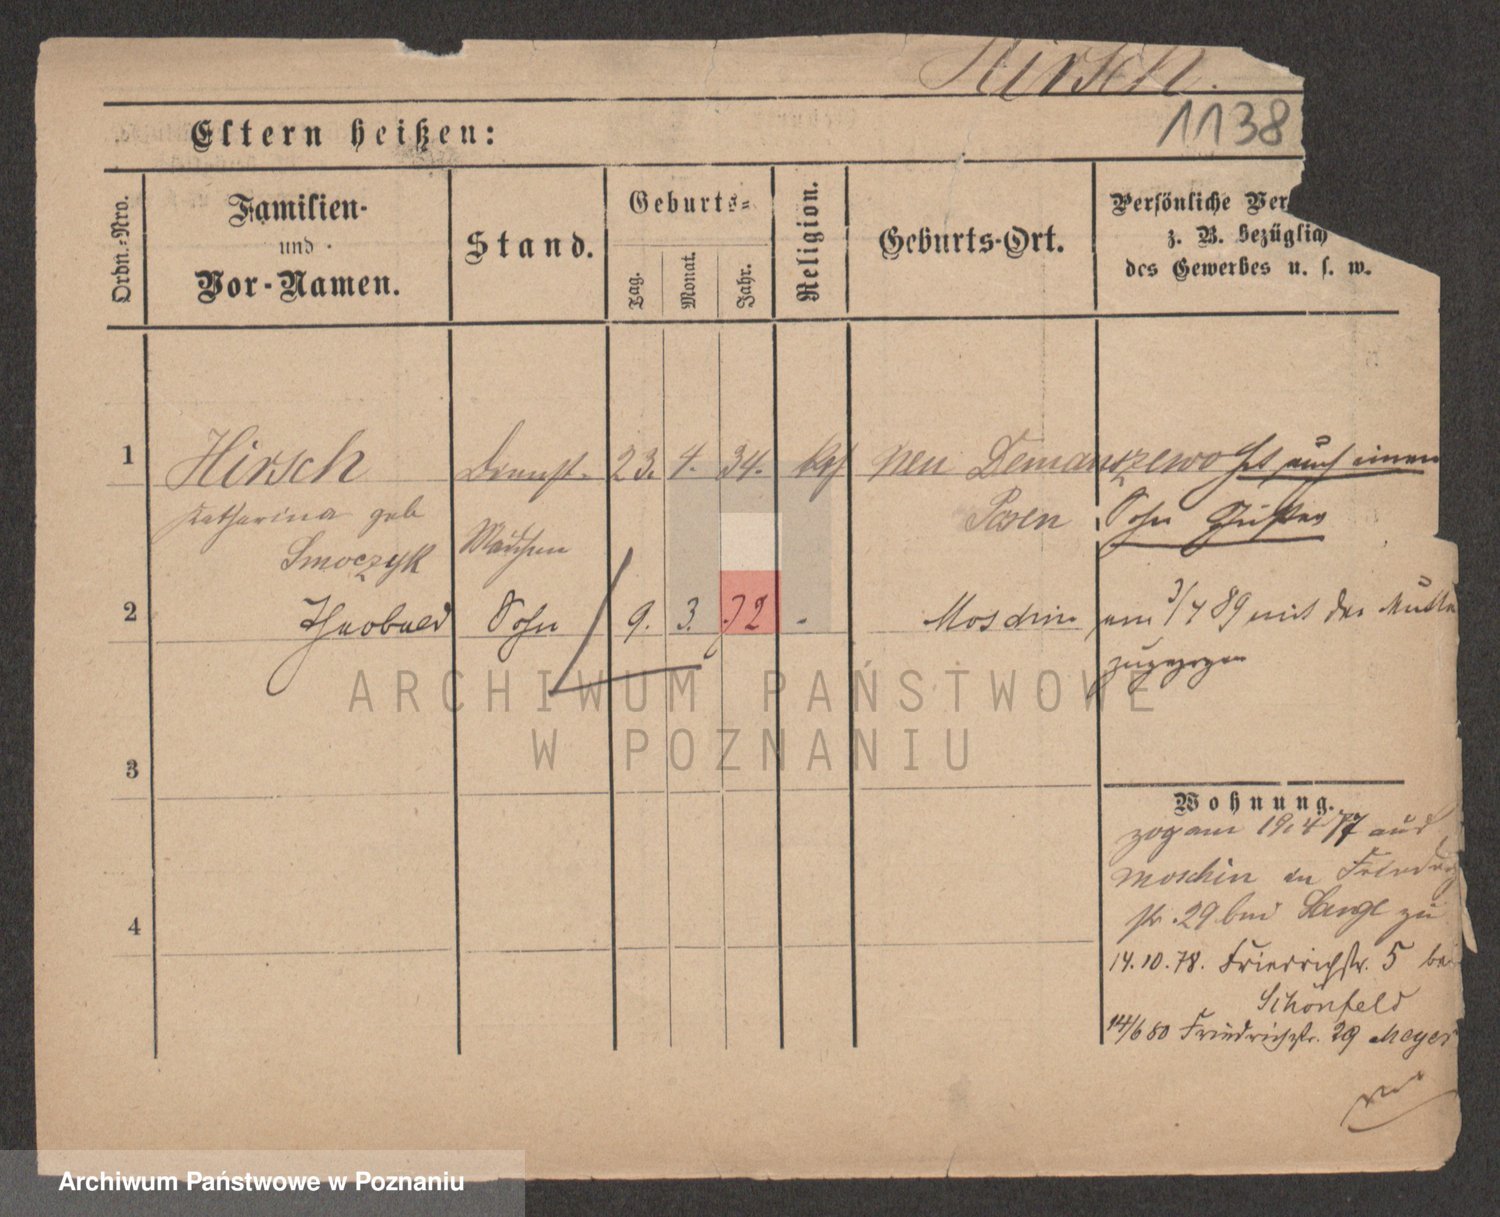 Hirsch.
1138
Eltern heißen:
Ordn.-Nro.
Familien-
und
Vor-Namen.
Stand.
Geburts-
Tag.
Monat.
Jahr.
Religion.
Geburts-Ort.
Persönliche Ver
z. B. bezüglich
des Gewerbes u. s. w.
1 Hirsch Dienst- 23. 4. 34. kath neu Demanczewo Hat auch einen
Katharina geb Mädchen Posen Sohn
Smoczyk
2 Sohn 9. 3. 72 - Moschin am 3/4 89 mit der Mutter
zugezogen
3
4
Wohnung.
zog am 19.4 77 aus
Moschin in
str. 29 bei zu
14.10.78. Friedrichstr. 5 bei
Schönfeld
14/6 80 Friedrichstr. 29 Meyer
ARCHIWUM PAŃSTWOWE
W POZNANIU
Archiwum Państwowe w Poznaniu